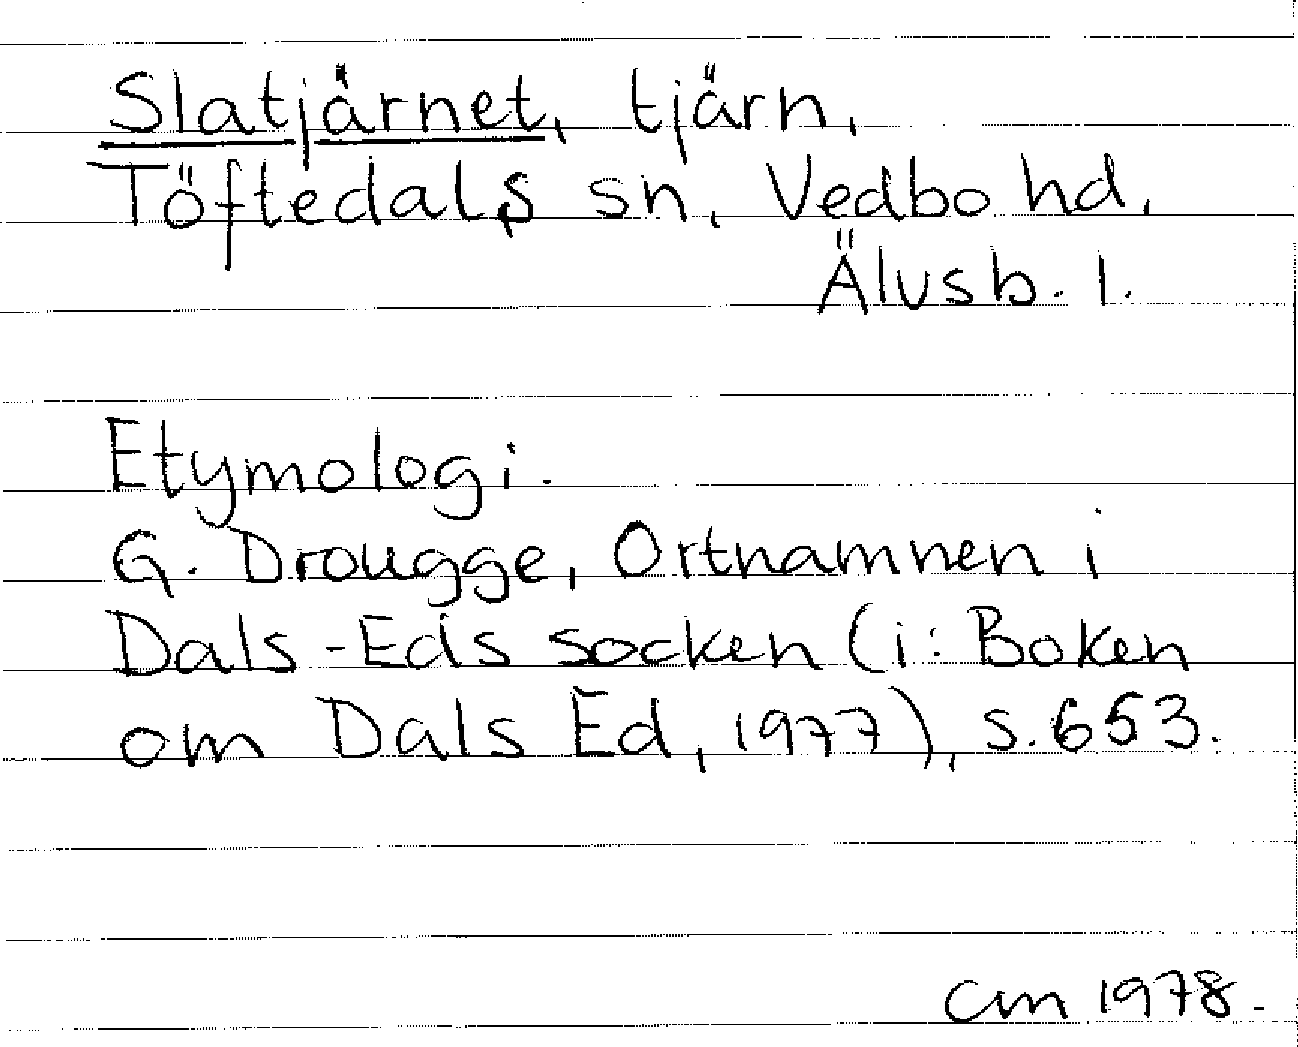 Slatjärnet, tjärn,
Töftedals sn, Vedbo hd,
Älvsb. l.
Etymologi.
G. Drougge, Ortnamnen i
Dals-Eds socken (i: Boken
om Dals Ed, 1977), s. 653.
CM 1978.